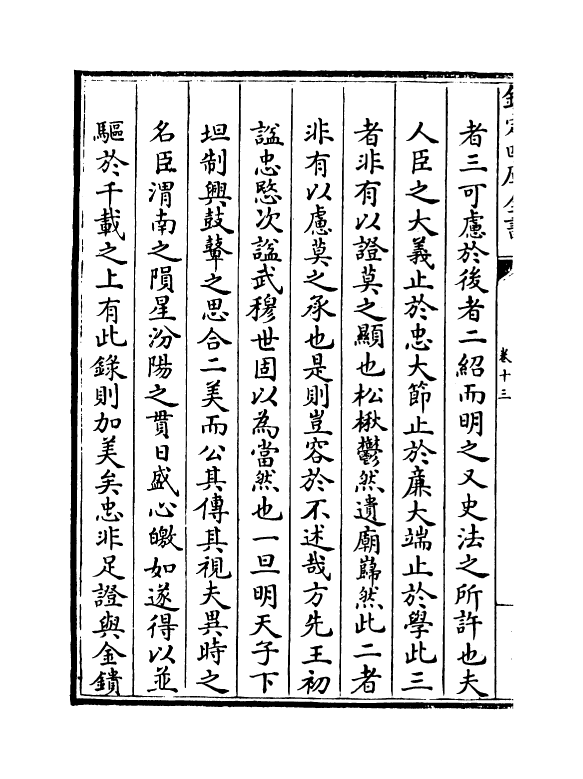 欽定四庫全書
卷十三
者三可慮於後者二紹而明之又史法之所許也夫
人臣之大義止於忠大節止於廉大端止於學此三
者非有以證莫之顯也松楸鬱然遺廟巋然此二者
非有以慮莫之承也是則豈容於不述哉方先王初
諡忠愍次諡武穆世固以為當然也一旦明天子下
坦制興鼓鼙之思合二美而公其傳其視夫異時之
名臣渭南之隕星汾陽之貫日盛心皦如遂得以並
驅於千載之上有此錄則加美矣忠非足證與金鐀